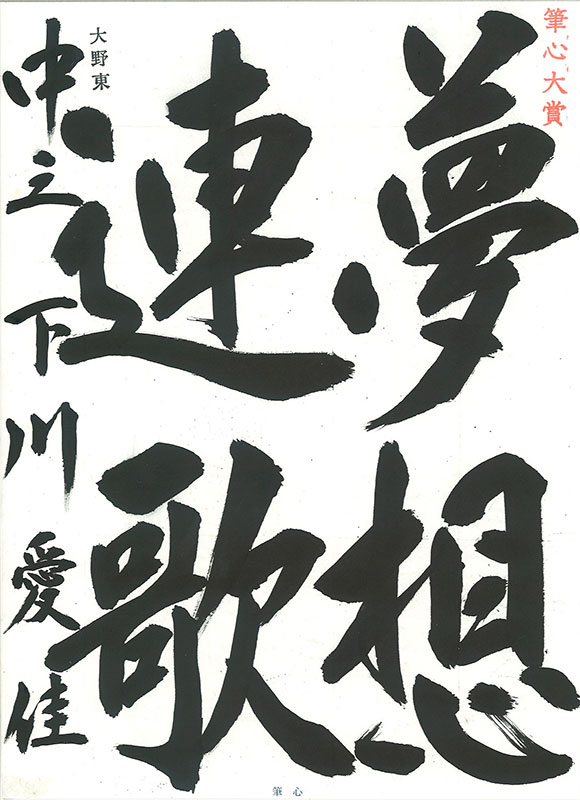 筆心大賞
夢想
連歌
大野東
中三下川愛佳
筆心